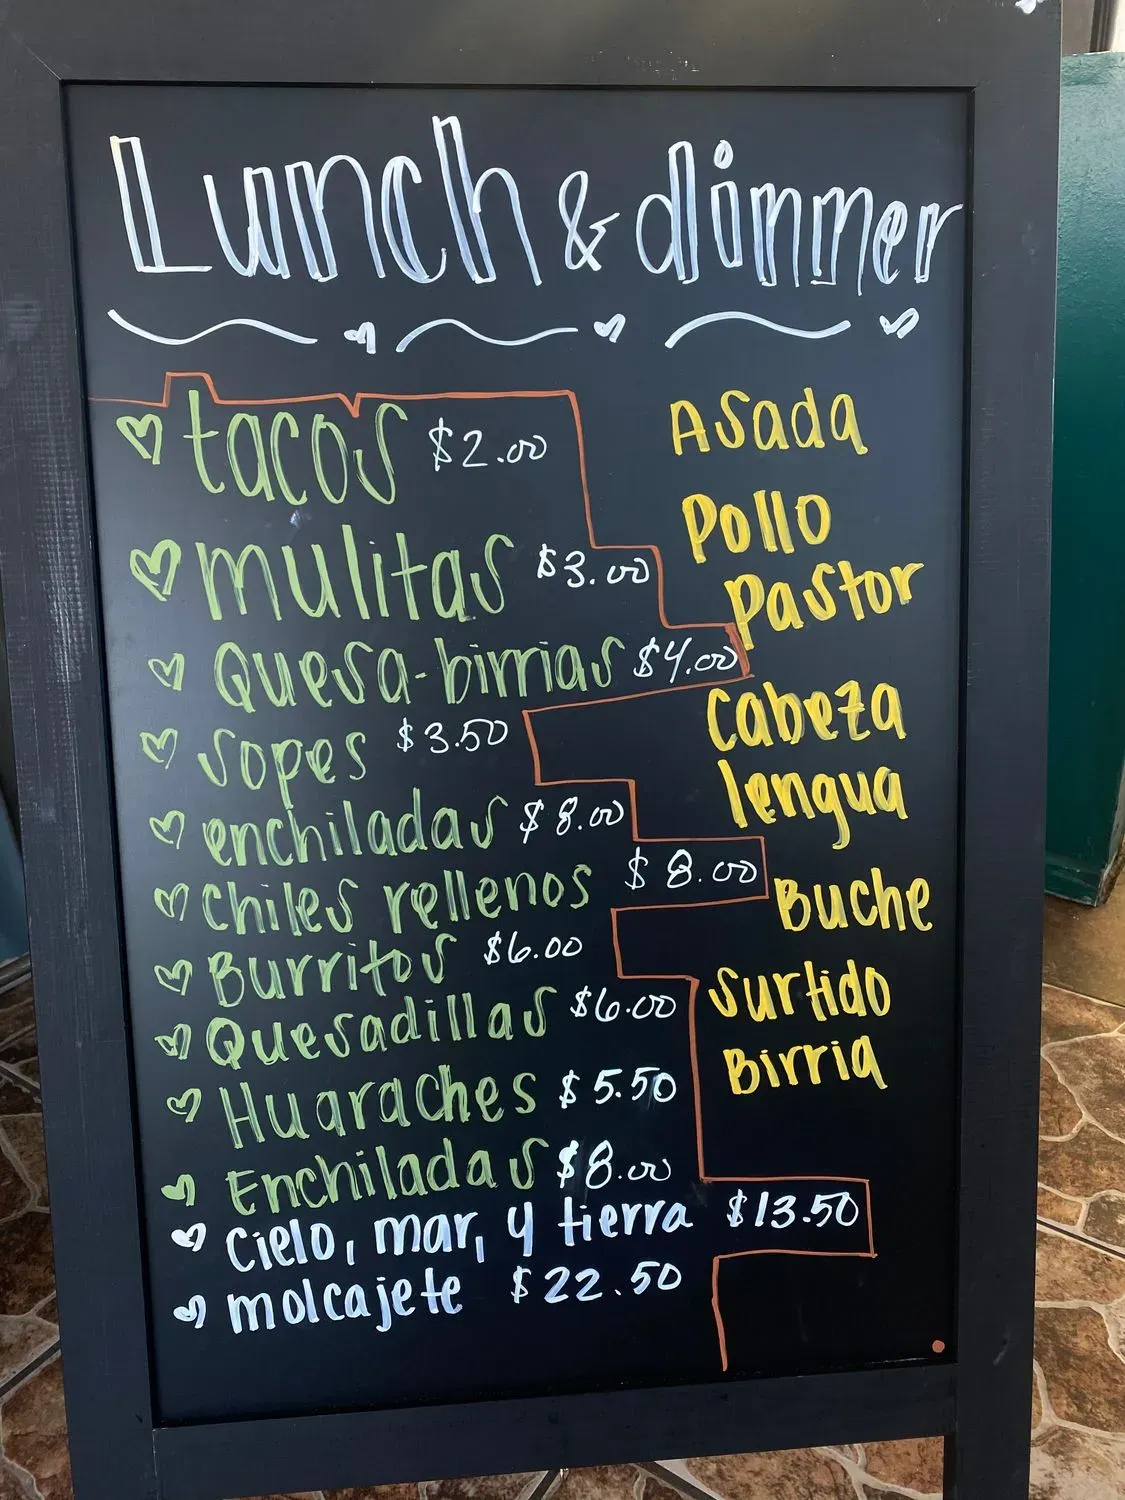 Lunch & dinner
tacos $2.00
mulitas $3.00
Quesa-birrias $4.00
Sopes $3.50
enchiladas $8.00
Chiles rellenos $8.00
Burritos $6.00
Quesadillas $6.00
Huaraches $5.50
Enchiladas $8.00
Cielo, mar, y tierra $13.50
molcajete $22.50
Asada
Pollo
Pastor
Cabeza
lengua
Buche
Surtido
Birria